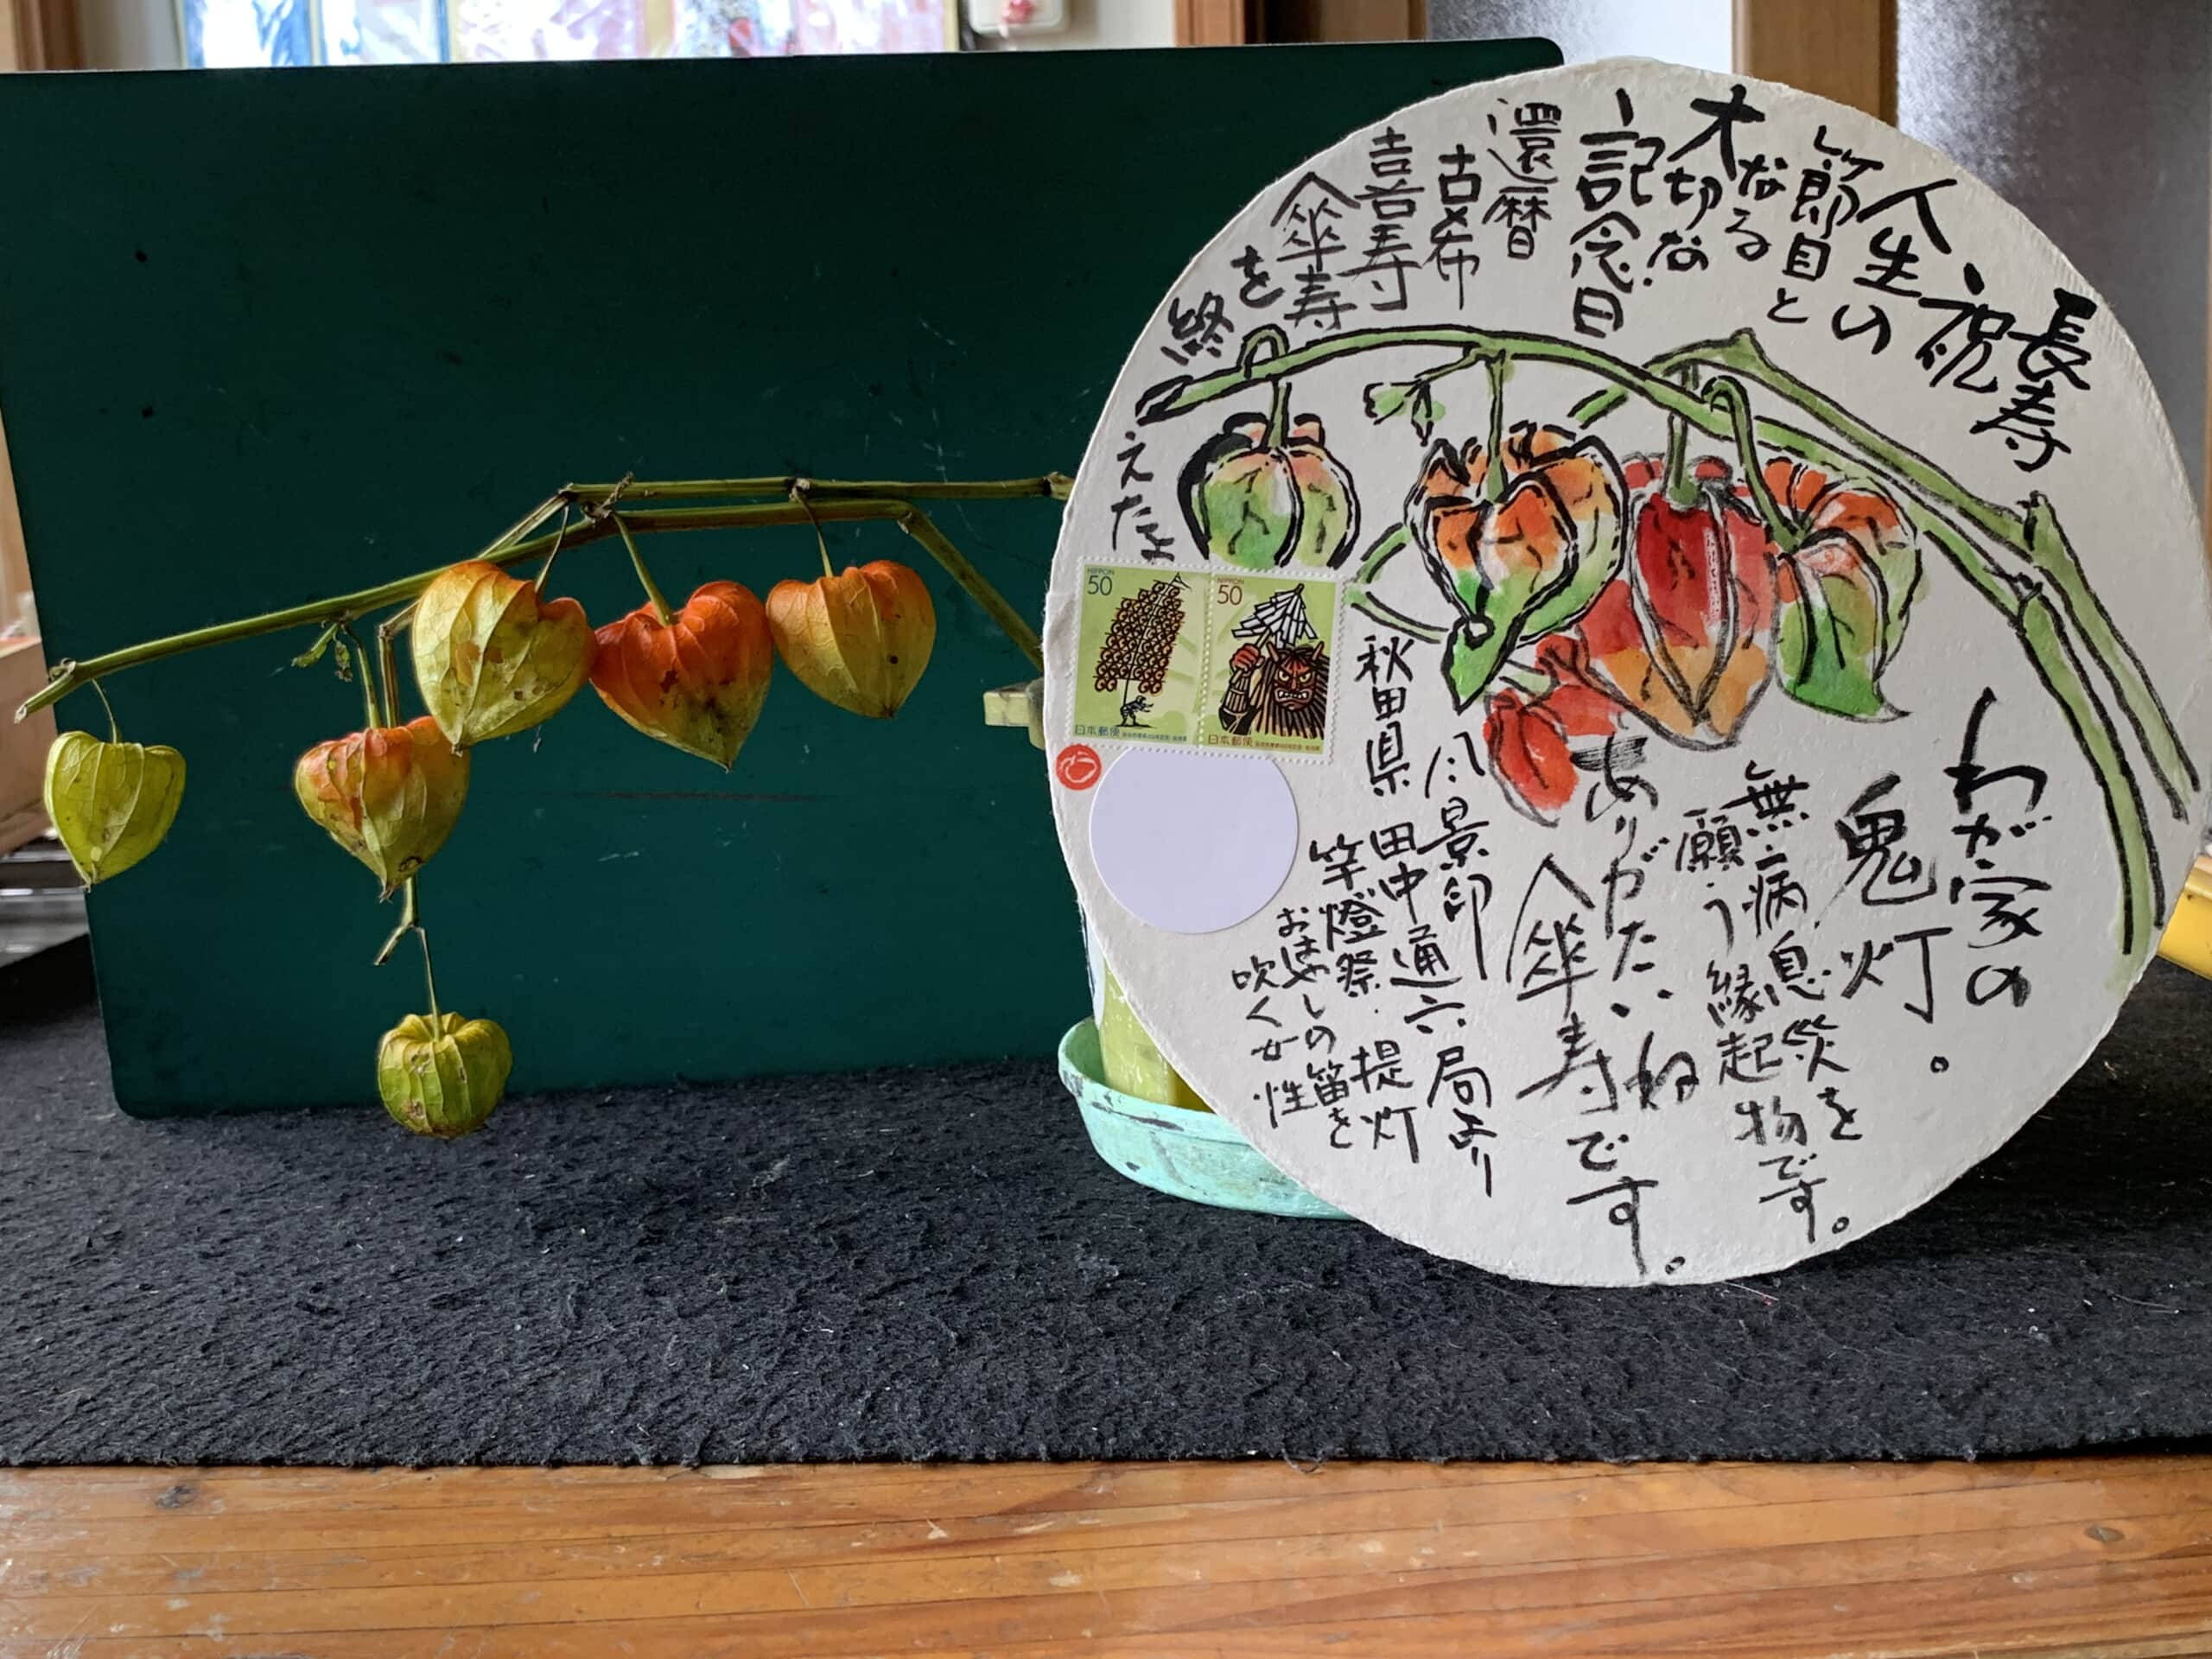 長寿
祝
人生の
節目と
なる
大切な
記念日
還暦
古希
喜寿
傘寿
を
終
えたよ
わが家の
鬼灯。
無病息災を
願う縁起物です。
ありがたいね
傘寿です。
風景印
秋田県 田中通六局より
竿燈祭 提灯
おはやしの笛を
吹く女性
NIPPON
50
日本郵便
NIPPON
50
日本郵便